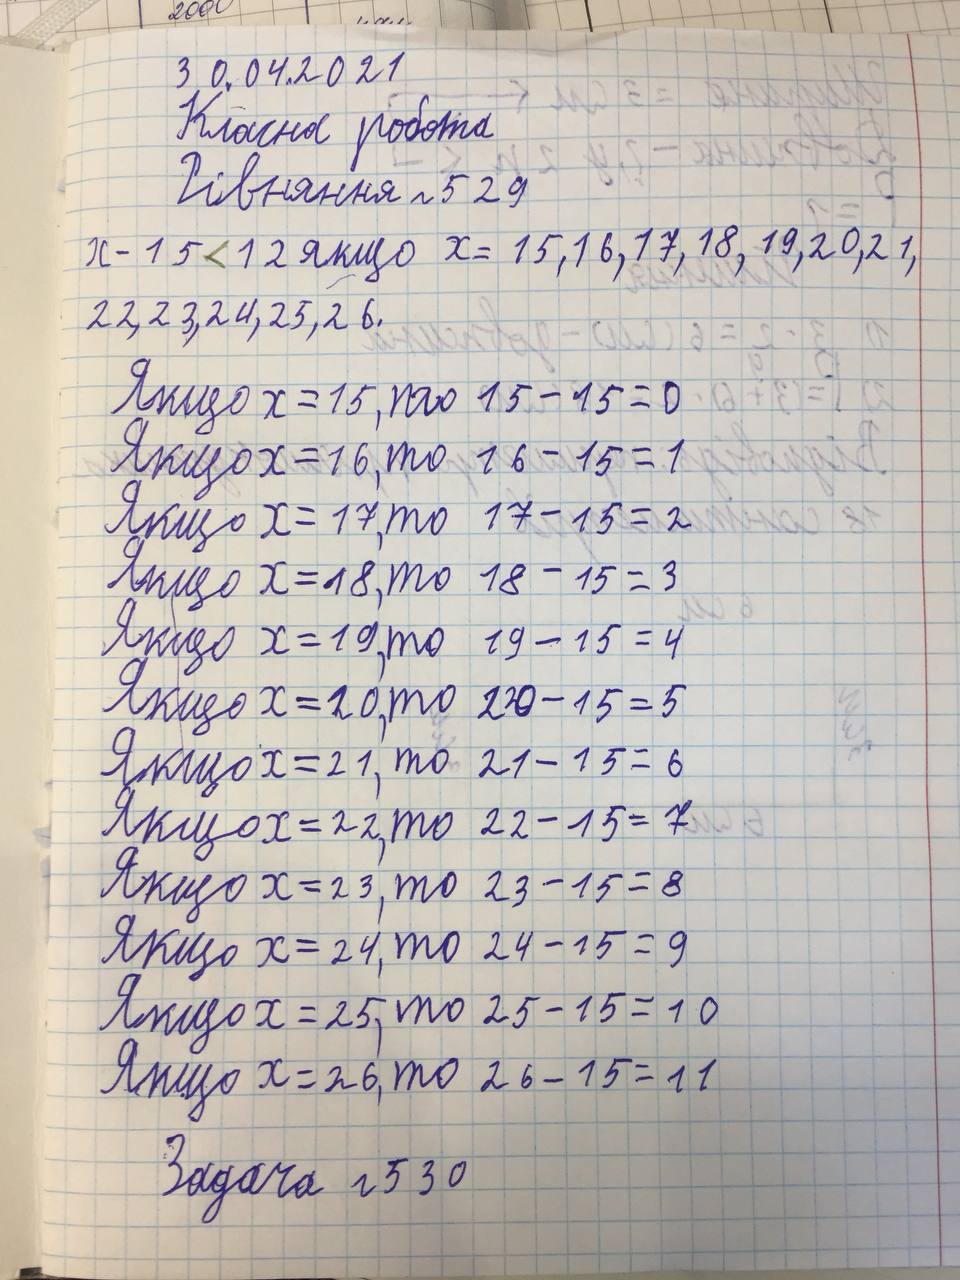 2000
30.04.2021
Класна робота
Рівняння №529
x - 15 < 12 якщо x = 15, 16, 17, 18, 19, 20, 21,
22, 23, 24, 25, 26.
Якщо x = 15, то 15 - 15 = 0
Якщо x = 16, то 16 - 15 = 1
Якщо x = 17, то 17 - 15 = 2
Якщо x = 18, то 18 - 15 = 3
Якщо x = 19, то 19 - 15 = 4
Якщо x = 20, то 20 - 15 = 5
Якщо x = 21, то 21 - 15 = 6
Якщо x = 22, то 22 - 15 = 7
Якщо x = 23, то 23 - 15 = 8
Якщо x = 24, то 24 - 15 = 9
Якщо x = 25, то 25 - 15 = 10
Якщо x = 26, то 26 - 15 = 11
Задача №530